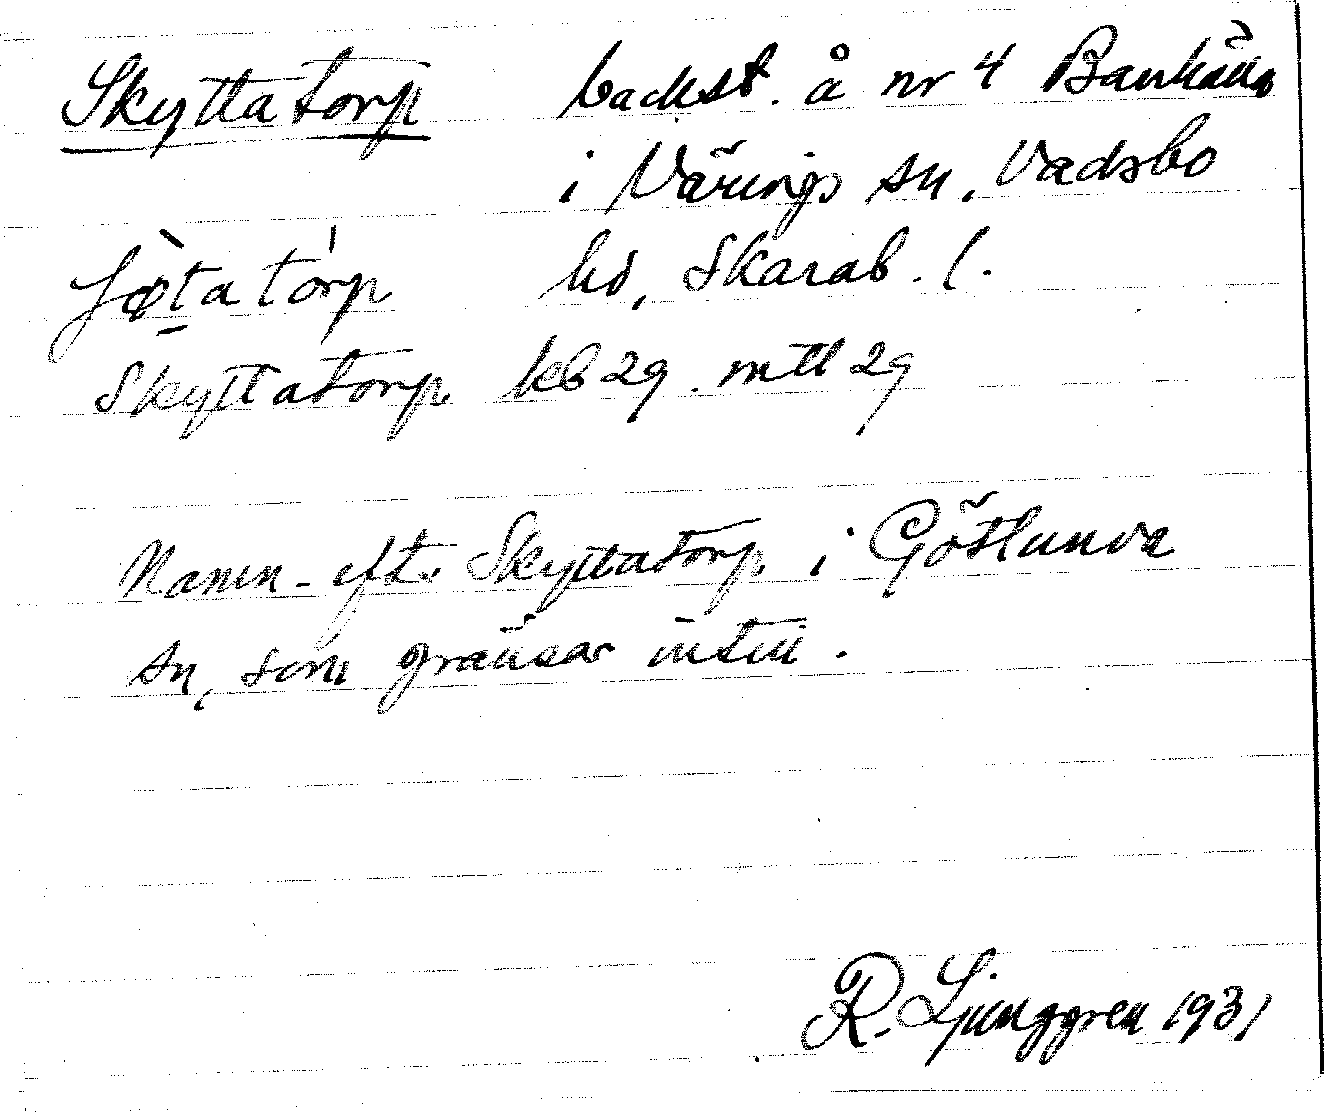 Skyttatorp backst. å nr 4 Bankälla
i Värings sn, Vadsbo
hd, Skarab. l.
Skyttatorp kb 29. mtl 29
Namn eft. Skyttatorp i Götlunda
sn, som gränsar intill.
R. Ljunggren 1931